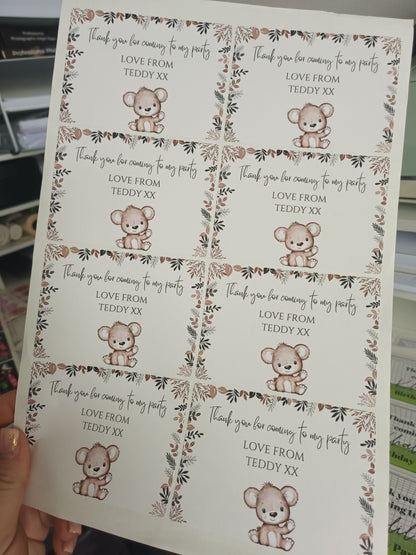 Thank you for coming to my party
LOVE FROM
TEDDY XX
Thank you for coming to my party
LOVE FROM
TEDDY XX
Thank you for coming to my party
LOVE FROM
TEDDY XX
Thank you for coming to my party
LOVE FROM
TEDDY XX
Thank you for coming to my party
LOVE FROM
TEDDY XX
Thank you for coming to my party
LOVE FROM
TEDDY XX
Thank you for coming to my party
LOVE FROM
TEDDY XX
Thank you for coming to my party
LOVE FROM
TEDDY XX